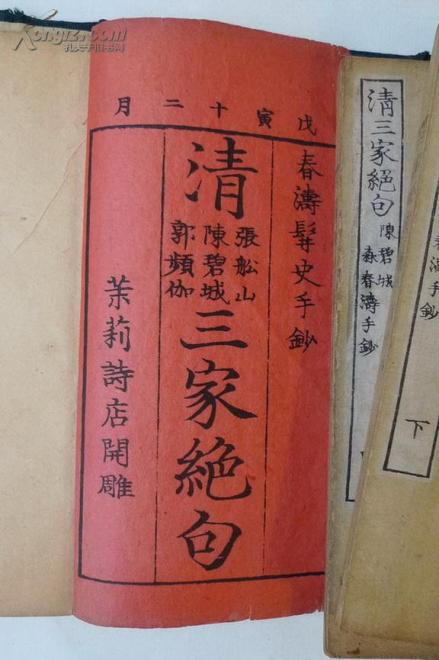 戊寅十二月
春濤髯史手鈔
清三家絕句
張船山
陳碧城
郭頻伽
茉莉詩店開雕
清三家絕句
陳碧城
森春濤手鈔
下
春濤手鈔
Kongfz.com
孔夫子旧书网